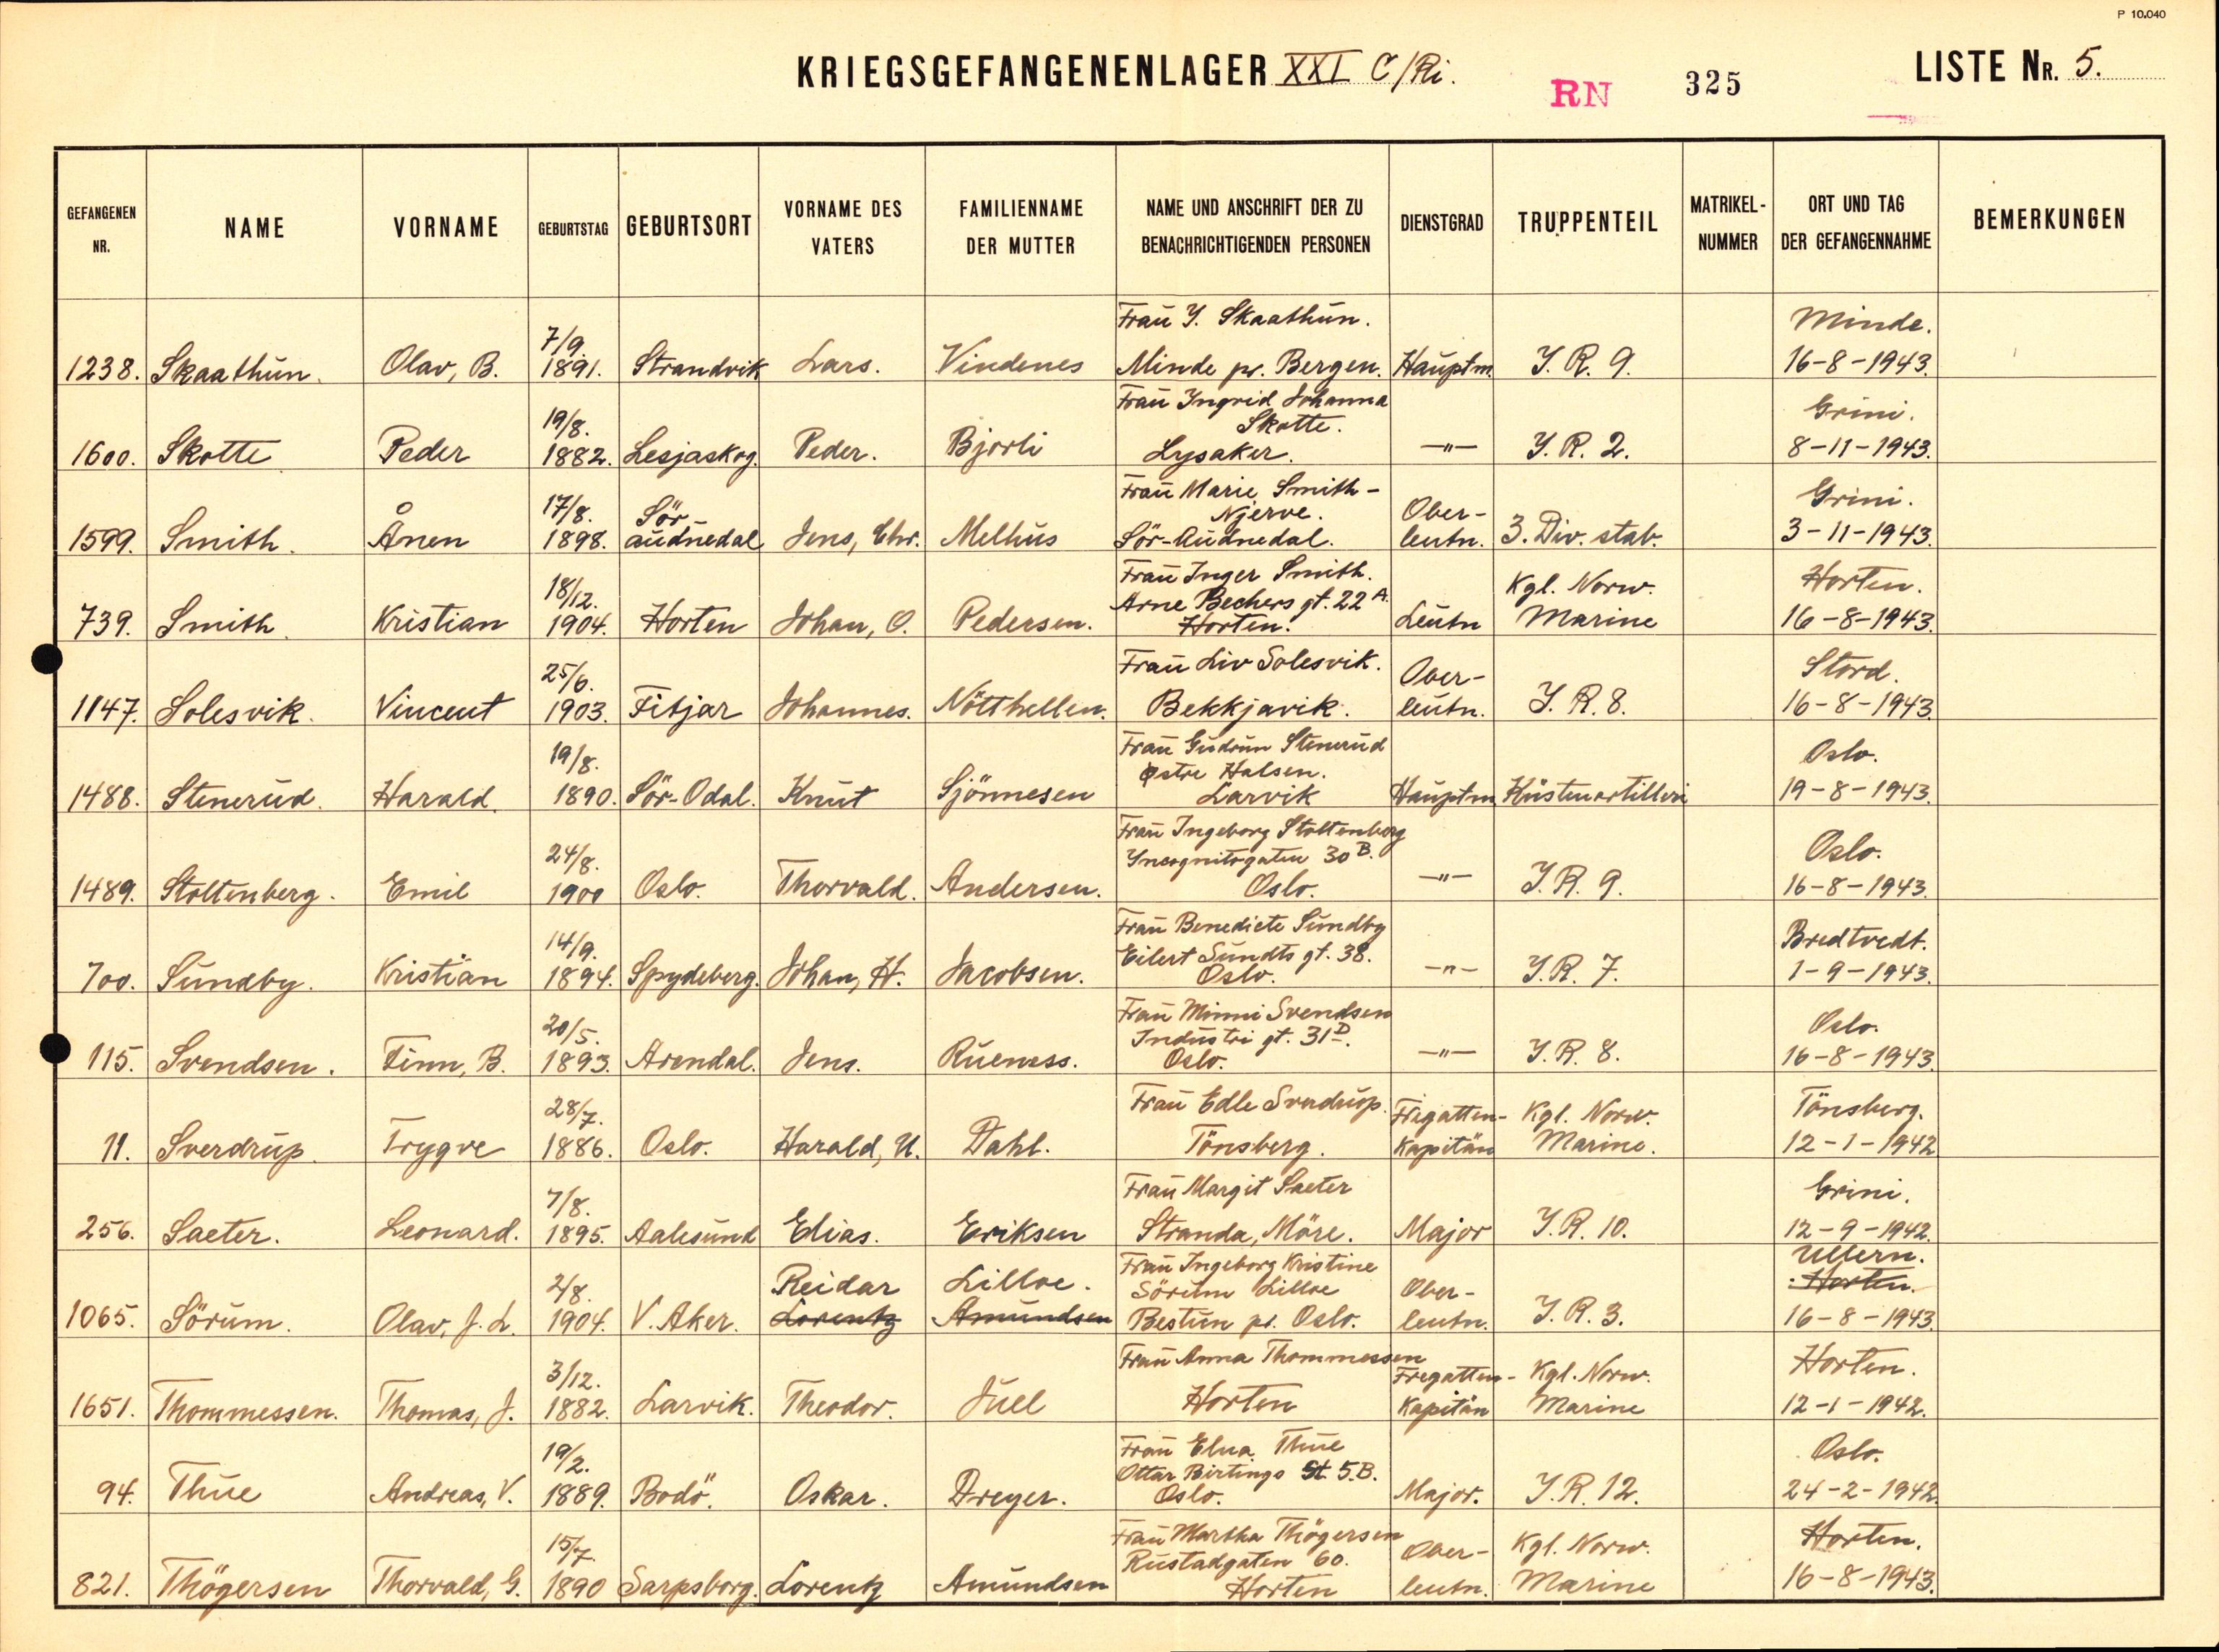 P 10.040
KRIEGSGEFANGENENLAGER XXI C/Ri.
RN 325
LISTE NR. 5.
GEFANGENEN NR.
NAME
VORNAME
GEBURTSTAG
GEBURTSORT
VORNAME DES VATERS
FAMILIENNAME DER MUTTER
NAME UND ANSCHRIFT DER ZU BENACHRICHTIGENDEN PERSONEN
DIENSTGRAD
TRUPPENTEIL
MATRIKEL-NUMMER
ORT UND TAG DER GEFANGENNAHME
BEMERKUNGEN
1238. Skaathun. Olav, B. 7/9. 1891. Strandvik Lars. Vindenes Frau Y. Skaathun. Minde pr. Bergen. Hauptm. J.R. 9. Minde. 16-8-1943.
1600. Skotte Peder 19/8. 1882. Lesjaskog. Peder. Bjorli Frau Ingrid Johanna Skotte. Lysaker. -"- J.R. 2. Grini. 8-11-1943.
1599. Smith. Ånen 17/8. 1898. Sör-audnedal Jens, Chr. Melhus Frau Marie Smith-Njerve. Sör-Audnedal. Oberleutn. 3. Div. stab. Grini. 3-11-1943.
739. Smith. Kristian 18/12. 1904. Horten Johan, O. Pedersen. Frau Inger Smith. Arne Bechers gt. 22 A. Horten. Leutn Kgl. Norw. Marine Horten. 16-8-1943.
1147. Solesvik. Vincent 25/6. 1903. Fitjar Johannes. Nötthellen. Frau Liv Solesvik. Bekkjavik. Oberleutn. J.R. 8. Stord. 16-8-1943.
1488. Stenerud. Harald. 19/8. 1890. Sör-Odal. Knut Sjönnesen Frau Gudrun Stenerud Østre Halsen. Larvik Hauptm Küstenartilleri Oslo. 19-8-1943.
1489. Stoltenberg. Emil 24/8. 1900 Oslo. Thorvald. Andersen. Frau Ingeborg Stoltenberg Yncognitogaten 30 B. Oslo. -"- J.R. 9. Oslo. 16-8-1943.
700. Sundby. Kristian 14/9. 1894. Spydeberg. Johan, H. Jacobsen. Frau Benedicte Sundby Eilert Sundts gt. 38. Oslo. -"- J.R. 7. Bredtvedt. 1-9-1943.
115. Svendsen. Finn, B. 20/5. 1893. Arendal. Jens. Rueness. Frau Minni Svendsen Industri gt. 31 D. Oslo. -"- J.R. 8. Oslo. 16-8-1943.
11. Sverdrup. Trygve 28/7. 1886. Oslo. Harald, U. Dahl. Frau Edle Sverdrup. Tönsberg. Fregatten-Kapitän Kgl. Norw. Marine. Tönsberg. 12-1-1942
256. Saeter. Leonard. 7/8. 1895. Aalesund Elias. Eriksen Frau Margit Saeter Stranda, Möre. Major J.R. 10. Grini. 12-9-1942.
1065. Sörum. Olav, J. L. 2/8. 1904. V. Aker. Reidar Lorentz Lilloe. Amundsen Frau Ingeborg Kristine Sörum Lilloe Bestun pr. Oslo. Oberleutn. J.R. 3. Ullern. Horten. 16-8-1943.
1651. Thommessen. Thomas, J. 3/12. 1882. Larvik. Theodor. Juel Frau Anna Thommessen Horten Fregatten-Kapitän Kgl. Norw. Marine Horten. 12-1-1942.
94. Thue Andreas, V. 19/2. 1889. Bodö. Oskar. Dreyer. Frau Elna Thue Ottar Birtings St. 5.B. Oslo. Major. J.R. 12. Oslo. 24-2-1942.
821. Thögersen Thorvald, G. 15/7. 1890 Sarpsborg. Lorentz Amundsen Frau Martha Thögersen Rustadgaten 60. Horten Oberleutn. Kgl. Norw. Marine Horten. 16-8-1943.